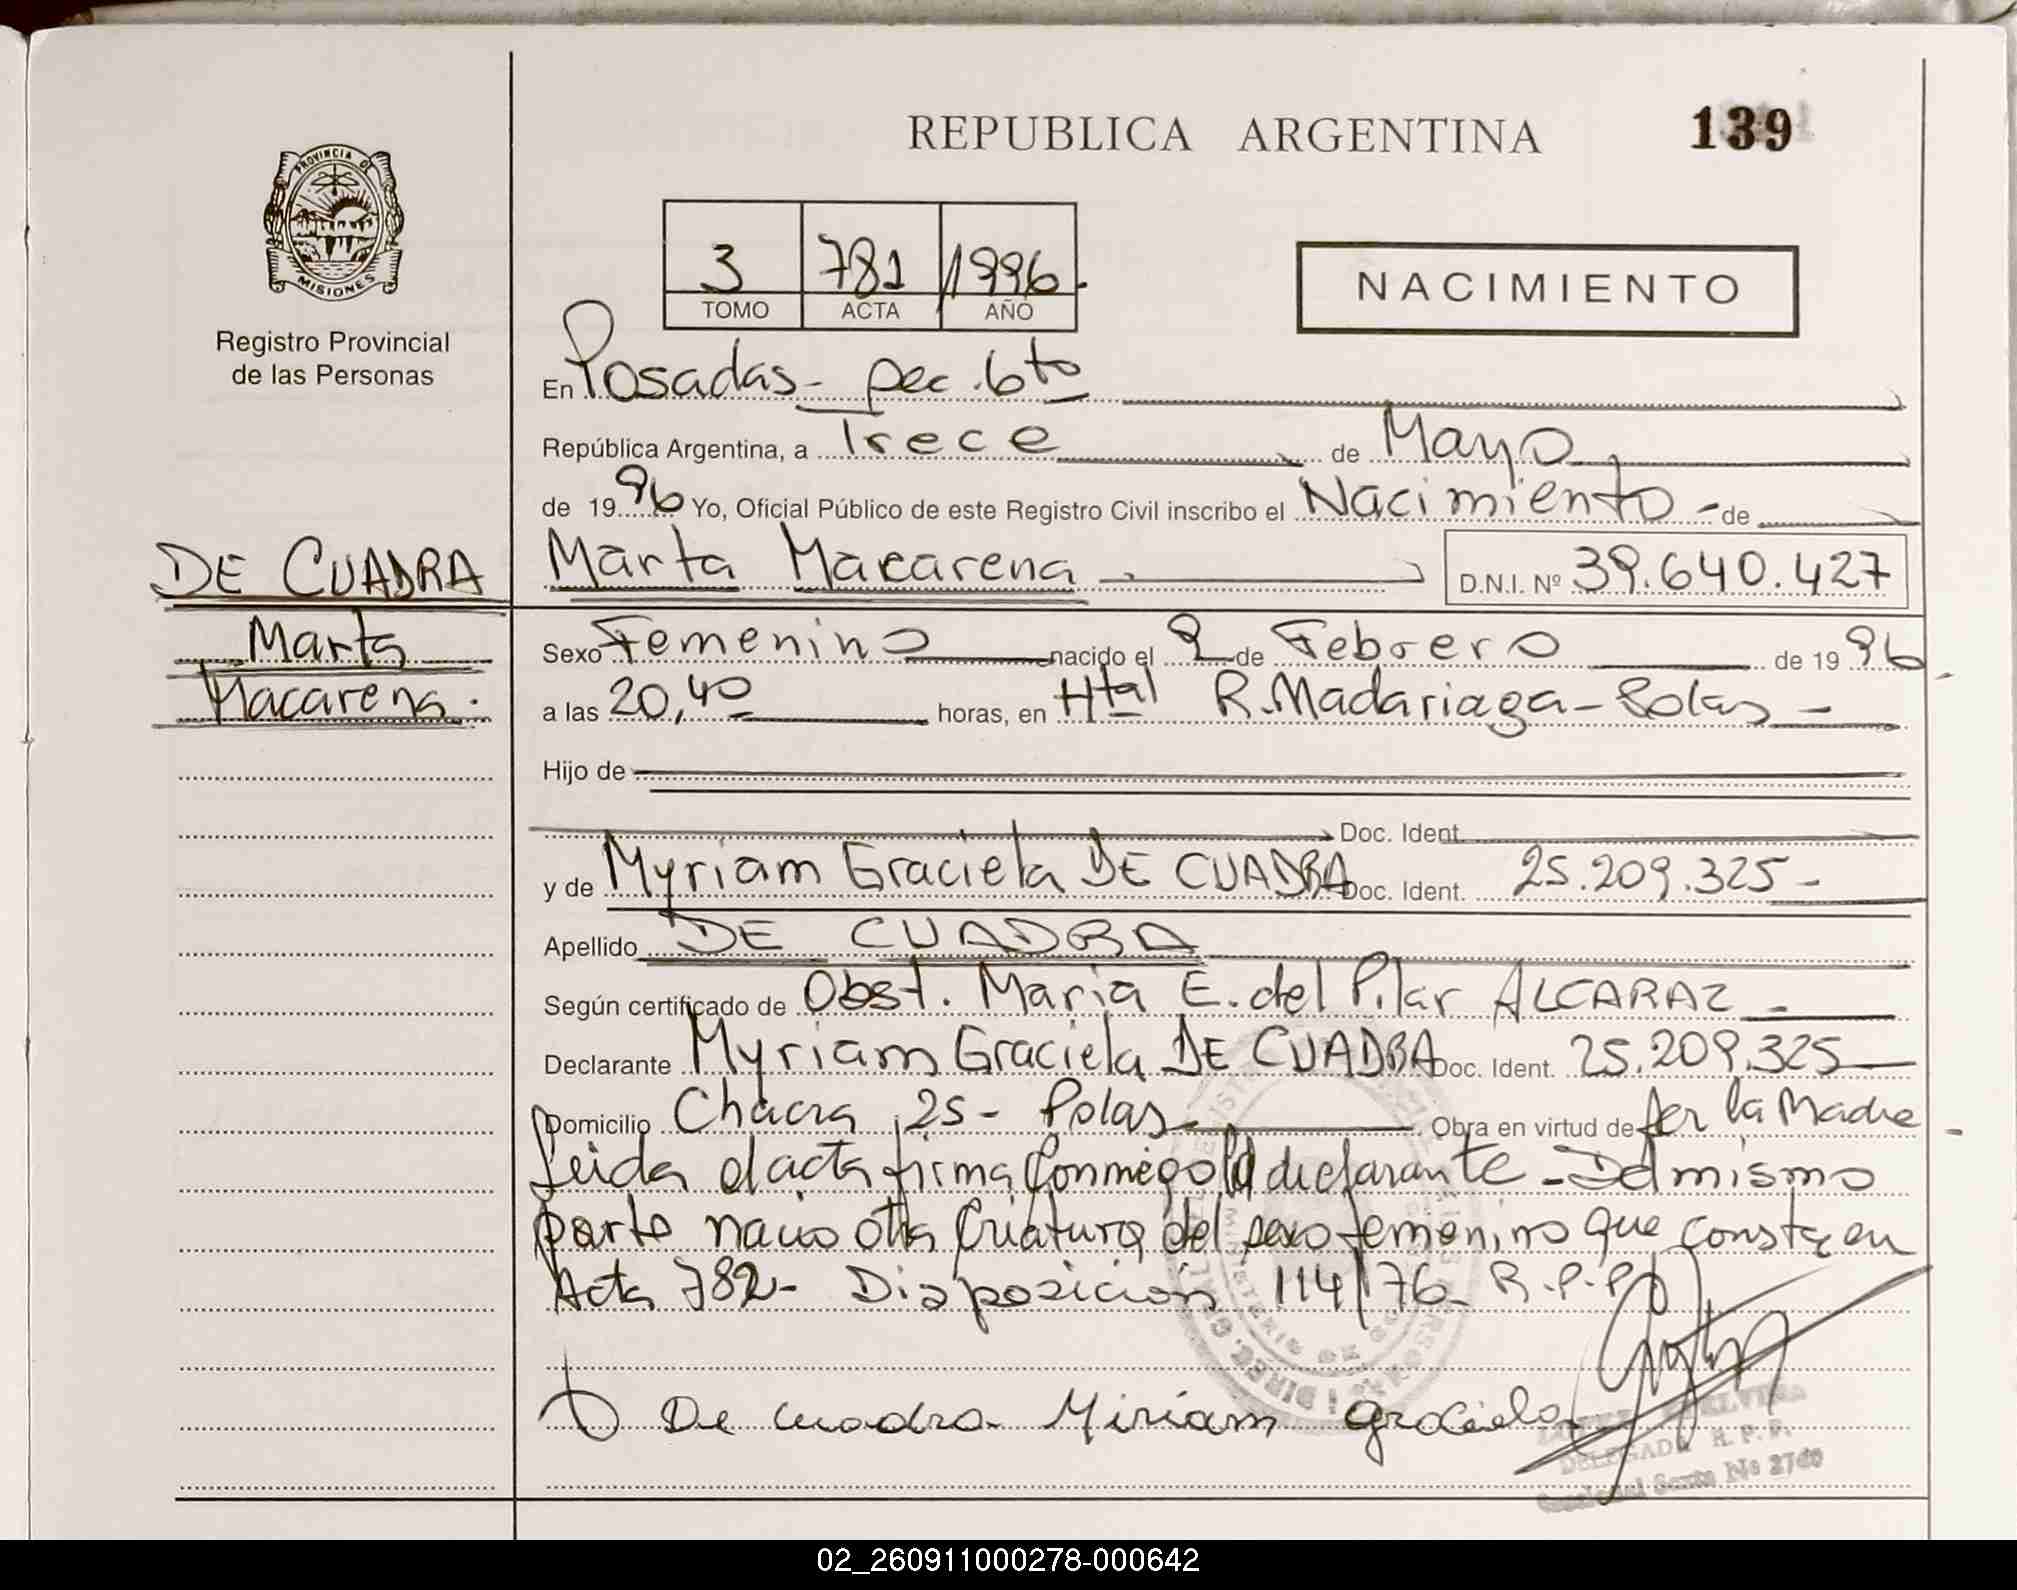 REPUBLICA ARGENTINA
139
PROVINCIA DE
MISIONES
Registro Provincial
de las Personas
3 781 1996
TOMO ACTA AÑO
NACIMIENTO
En Posadas - pec. 6to
República Argentina, a Trece de Mayo
de 1996 Yo, Oficial Público de este Registro Civil inscribo el Nacimiento - de
DE CUADRA
Marta
Macarena.
Marta Macarena D.N.I. Nº 39.640.427
Sexo Femenino nacido el 9 de Febrero de 1996
a las 20,40 horas, en Htal R. Madariaga - Pdas -
Hijo de
Doc. Ident.
y de Myriam Graciela DE CUADRA Doc. Ident. 25.209.325 -
Apellido DE CUADRA
Según certificado de Obst. Maria E. del Pilar ALCARAZ -
Declarante Myriam Graciela DE CUADRA Doc. Ident. 25.209.325
Domicilio Chacra 25 - Pdas - Obra en virtud de ser la Madre -
Leida el acta firma conmigo la declarante - Del mismo
parto nacio otra criatura del sexo femenino que consta en
Acta 782 - Disposicion 114/76 R.P.P
De cuadra Miriam graciela
DELEGADA R. P. P.
Sexta Nº 2740
02_260911000278-000642